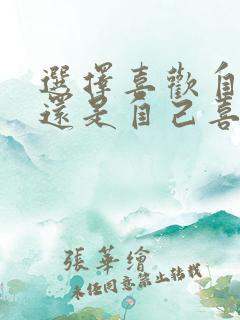 選擇喜歡自
還是自己喜
張華繪
未任同意禁止轉載